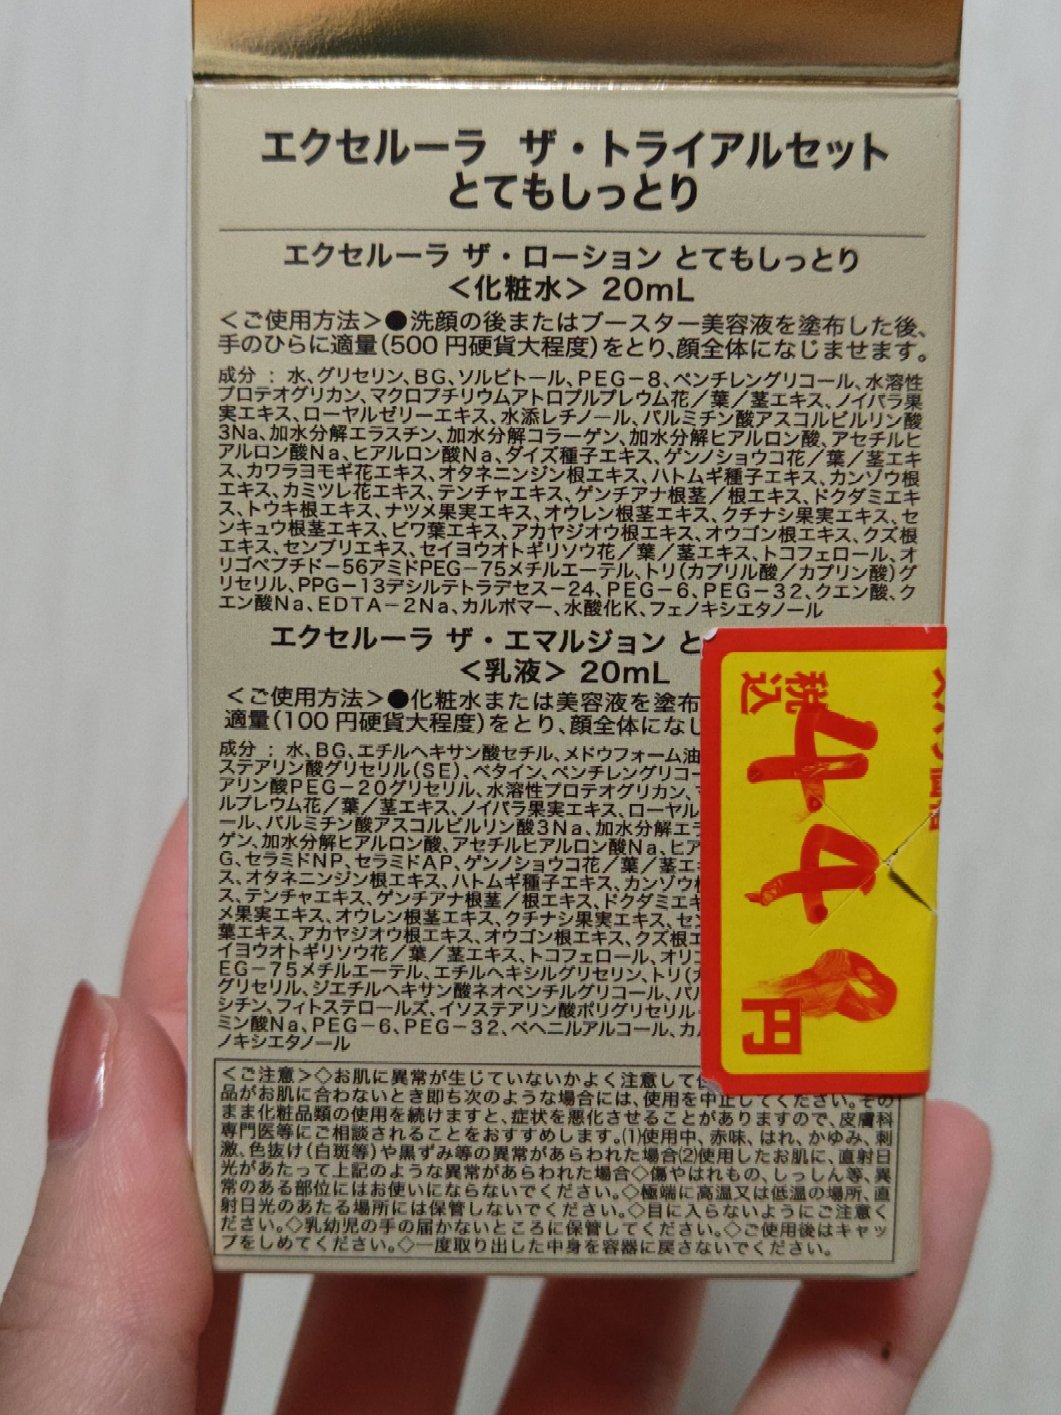 エクセルーラ ザ・トライアルセット
とてもしっとり
エクセルーラ ザ・ローション とてもしっとり
<化粧水> 20mL
<ご使用方法>●洗顔の後またはブースター美容液を塗布した後、
手のひらに適量(500円硬貨大程度)をとり、顔全体になじませます。
成分 : 水、グリセリン、BG、ソルビトール、PEG-8、ペンチレングリコール、水溶性
プロテオグリカン、マクロプチリウムアトロプルプレウム花/葉/茎エキス、ノイバラ果
実エキス、ローヤルゼリーエキス、水添レチノール、パルミチン酸アスコルビルリン酸
3Na、加水分解エラスチン、加水分解コラーゲン、加水分解ヒアルロン酸、アセチルヒ
アルロン酸Na、ヒアルロン酸Na、ダイズ種子エキス、ゲンノショウコ花/葉/茎エキ
ス、カワラヨモギ花エキス、オタネニンジン根エキス、ハトムギ種子エキス、カンゾウ根
エキス、カミツレ花エキス、テンチャエキス、ゲンチアナ根茎/根エキス、ドクダミエキ
ス、トウキ根エキス、ナツメ果実エキス、オウレン根茎エキス、クチナシ果実エキス、セ
ンキュウ根茎エキス、ビワ葉エキス、アカヤジオウ根エキス、オウゴン根エキス、クズ根
エキス、センブリエキス、セイヨウオトギリソウ花/葉/茎エキス、トコフェロール、オ
リゴペプチド-56アミドPEG-75メチルエーテル、トリ(カプリル酸/カプリン酸)グ
リセリル、PPG-13デシルテトラデセス-24、PEG-6、PEG-32、クエン酸、ク
エン酸Na、EDTA-2Na、カルボマー、水酸化K、フェノキシエタノール
エクセルーラ ザ・エマルジョン と
<乳液> 20mL
<ご使用方法>●化粧水または美容液を塗布
適量(100円硬貨大程度)をとり、顔全体になじ
成分 : 水、BG、エチルヘキサン酸セチル、メドウフォーム油
ステアリン酸グリセリル(SE)、ベタイン、ペンチレングリコー
アリン酸PEG-20グリセリル、水溶性プロテオグリカン、
ルプレウム花/葉/茎エキス、ノイバラ果実エキス、ローヤル
ール、パルミチン酸アスコルビルリン酸3Na、加水分解エラ
ゲン、加水分解ヒアルロン酸、アセチルヒアルロン酸Na、ヒア
G、セラミドNP、セラミドAP、ゲンノショウコ花/葉/茎エキ
ス、オタネニンジン根エキス、ハトムギ種子エキス、カンゾウ
ス、テンチャエキス、ゲンチアナ根茎/根エキス、ドクダミエキ
メ果実エキス、オウレン根茎エキス、クチナシ果実エキス、セン
葉エキス、アカヤジオウ根エキス、オウゴン根エキス、クズ根エ
イヨウオトギリソウ花/葉/茎エキス、トコフェロール、オリゴ
EG-75メチルエーテル、エチルヘキシルグリセリン、トリ(カ
グリセリル、ジエチルヘキサン酸ネオペンチルグリコール、パル
シチン、フィトステロールズ、イソステアリン酸ポリグリセリル
ミン酸Na、PEG-6、PEG-32、ベヘニルアルコール、カル
ノキシエタノール
税込
448円
<ご注意>◇お肌に異常が生じていないかよく注意して使
品がお肌に合わないとき即ち次のような場合には、使用を中止してください。その
まま化粧品類の使用を続けますと、症状を悪化させることがありますので、皮膚科
専門医等にご相談されることをおすすめします。(1)使用中、赤味、はれ、かゆみ、刺
激、色抜け(白斑等)や黒ずみ等の異常があらわれた場合(2)使用したお肌に、直射日
光があたって上記のような異常があらわれた場合◇傷やはれもの、しっしん等、異
常のある部位にはお使いにならないでください。◇極端に高温又は低温の場所、直
射日光のあたる場所には保管しないでください。◇目に入らないようにご注意く
ださい。◇乳幼児の手の届かないところに保管してください。◇ご使用後はキャッ
プをしめてください。◇一度取り出した中身を容器に戻さないでください。